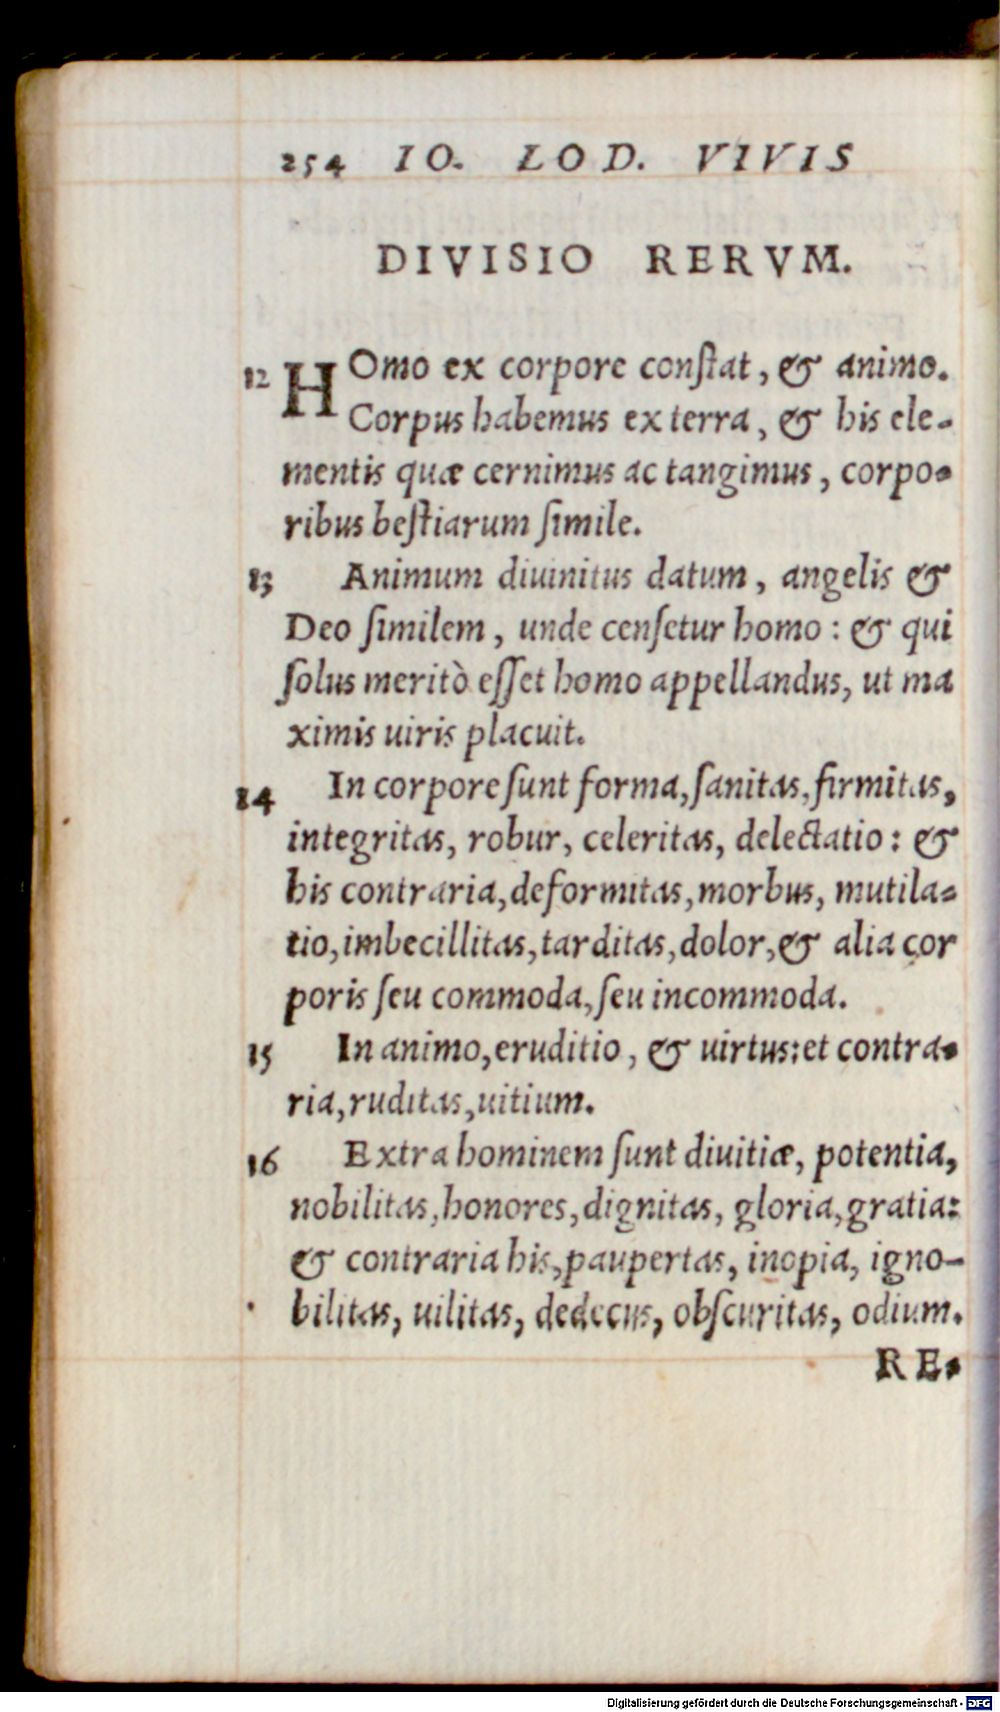 254 IO. LOD. VIVIS
DIVISIO RERVM.
12 HOmo ex corpore conſtat, & animo.
Corpus habemus ex terra, & his ele-
mentis quæ cernimus ac tangimus, corpo-
ribus beſtiarum ſimile.
13 Animum diuinitus datum, angelis &
Deo ſimilem, unde cenſetur homo: & qui
ſolus meritò eſſet homo appellandus, ut ma
ximis uiris placuit.
14 In corpore ſunt forma, ſanitas, firmitas,
integritas, robur, celeritas, delectatio: &
his contraria, deformitas, morbus, mutila-
tio, imbecillitas, tarditas, dolor, & alia cor
poris ſeu commoda, ſeu incommoda.
15 In animo, eruditio, & uirtus: et contra-
ria, ruditas, uitium.
16 Extra hominem ſunt diuitiæ, potentia,
nobilitas, honores, dignitas, gloria, gratia:
& contraria his, paupertas, inopia, igno-
bilitas, uilitas, dedecus, obſcuritas, odium.
RE-
Digitalisierung gefördert durch die Deutsche Forschungsgemeinschaft - DFG